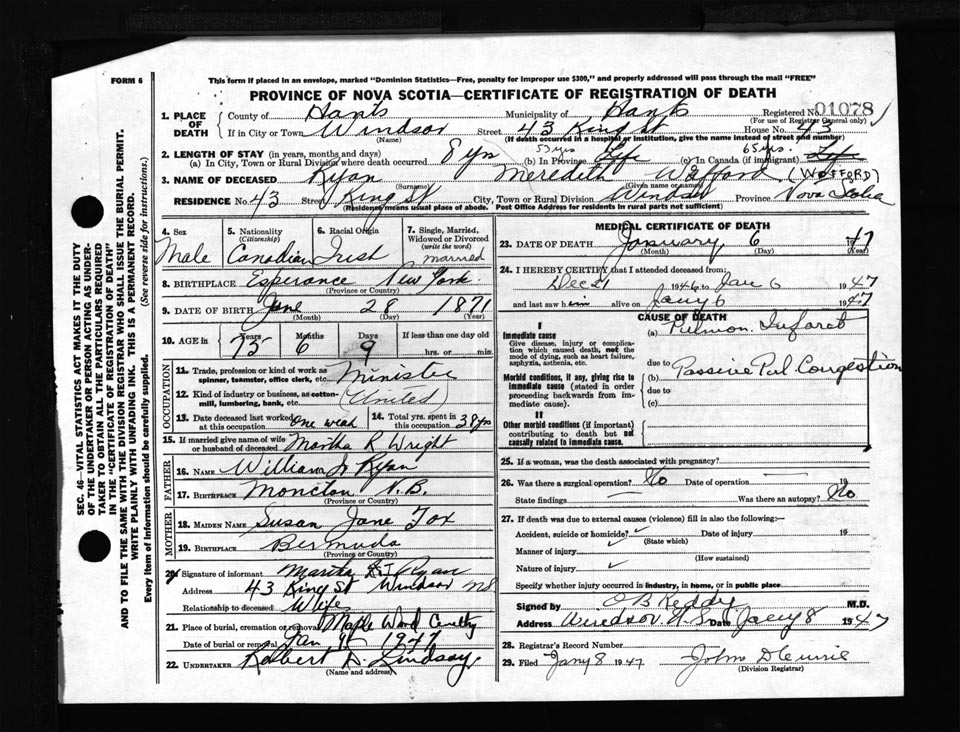 FORM 6
This form if placed in an envelope, marked "Dominion Statistics—Free, penalty for improper use $300," and properly addressed will pass through the mail "FREE"
PROVINCE OF NOVA SCOTIA—CERTIFICATE OF REGISTRATION OF DEATH
1. PLACE OF DEATH County of Hants Municipality of Hants Registered No. 01078
(For use of Registrar General only)
If in City or Town Windsor Street 43 King St House No. 43
(Name) (If death occurred in a hospital or institution, give the name instead of street and number)
2. LENGTH OF STAY (in years, months and days) 53 yrs 65 yrs.
(a) In City, Town or Rural Division where death occurred 8 yrs (b) In Province Life (c) In Canada (if immigrant) Life
3. NAME OF DECEASED Ryan Meredith Wafford (WOFFORD)
(Surname) (Given name or names)
RESIDENCE No. 43 Street King St City, Town or Rural Division Windsor Province Nova Scotia
(Residence means usual place of abode. Post Office Address for residents in rural parts not sufficient)
4. Sex Male
5. Nationality (Citizenship) Canadian
6. Racial Origin Irish
7. Single, Married, Widowed or Divorced (write the word) married
8. BIRTHPLACE Esperance New York
(Province or Country)
9. DATE OF BIRTH June 28 1871
(Month) (Day) (Year)
10. AGE in Years 75 Months 6 Days 9 If less than one day old
hrs. or min.
OCCUPATION
11. Trade, profession or kind of work as spinner, teamster, office clerk, etc. Minister
12. Kind of industry or business, as cotton-mill, lumbering, bank, etc. (United)
13. Date deceased last worked at this occupation One week
14. Total yrs. spent in this occupation 38 yrs
15. If married give name of wife or husband of deceased Martha R Wright
FATHER
16. NAME William J Ryan
17. BIRTHPLACE Moncton N.B.
(Province or Country)
MOTHER
18. MAIDEN NAME Susan Jane Fox
19. BIRTHPLACE Bermuda
(Province or Country)
20. Signature of informant Martha R Ryan
Address 43 King St Windsor NS
Relationship to deceased Wife
21. Place of burial, cremation or removal Maple Wood Cemetery
Date of burial or removal Jan 9 1947
22. UNDERTAKER Robert D. Lindsay
(Name and address)
MEDICAL CERTIFICATE OF DEATH
23. DATE OF DEATH January 6 1947
(Month) (Day) (Year)
24. I HEREBY CERTIFY that I attended deceased from:
Dec 21 1946 to Jan 6 1947
and last saw him alive on Jany 6 1947
CAUSE OF DEATH
I
Immediate cause
Give disease, injury or complication which caused death, not the mode of dying, such as heart failure, asphyxia, asthenia, etc.
(a) Pulmon. Infarct
due to
Morbid conditions, if any, giving rise to immediate cause (stated in order proceeding backwards from immediate cause).
(b) Passive Pul Congestion
due to
(c)
II
Other morbid conditions (if important) contributing to death but not causally related to immediate cause.
25. If a woman, was the death associated with pregnancy?
26. Was there a surgical operation? No Date of operation 19
State findings Was there an autopsy? No
27. If death was due to external causes (violence) fill in also the following:—
Accident, suicide or homicide? Date of injury 19
(State which)
Manner of injury
(How sustained)
Nature of injury
Specify whether injury occurred in industry, in home, or in public place
Signed by O B Keddy M.D.
Address Windsor N.S. Date Jany 8 1947
28. Registrar's Record Number
29. Filed Jany 8 1947 John D Currie
(Division Registrar)
SEC. 46—VITAL STATISTICS ACT MAKES IT THE DUTY
OF THE UNDERTAKER OR PERSON ACTING AS UNDER-
TAKER TO OBTAIN ALL THE PARTICULARS REQUIRED
IN THE "CERTIFICATE OF REGISTRATION OF DEATH"
AND TO FILE THE SAME WITH THE DIVISION REGISTRAR WHO SHALL ISSUE THE BURIAL PERMIT.
WRITE PLAINLY WITH UNFADING INK. THIS IS A PERMANENT RECORD.
Every item of Information should be carefully supplied. (See reverse side for instructions.)